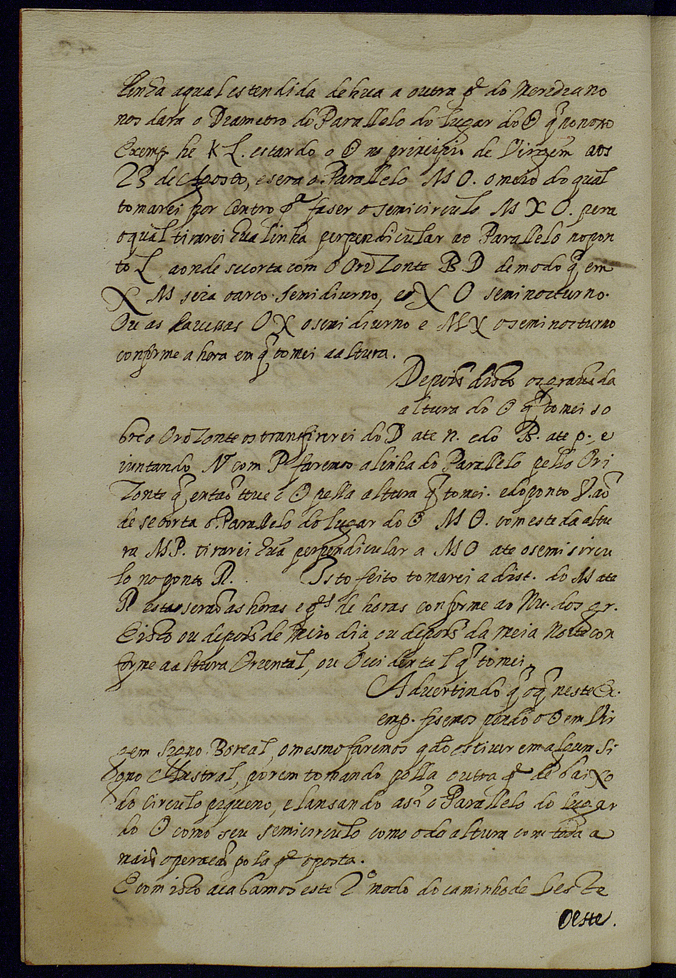 linha aqual estendida de hua a outra pᵗᵉ do Meredeano
nos dara o Deametro do Parallelo do lugar do ʘ q̃ no noso
Exemp. he K L. estando o ʘ no principio de Virgem aos
23 de Agosto, e sera o Parallelo M O. o meio do qual
tomarei por Centro pᵃ faser o semicirculo M X O. pera
o qual tirarei hua linha perpendicular ao Parallelo no pon
to L aonde se corta com o OriZonte B D de modo q̃ em
X M seia o arco semidiurno, e o X O seminocturno.
Ou as O X o semidiurno e M X o seminocturno
conforme a hora em q̃ tomei a altura.
Depois disto os graos da
altura do ʘ q̃ tomei so
bre o OriZonte os transfirirei do D ate n. e do B. ate p. e
iuntando N com P faremos a linha do Parallelo pello Ori
Zonte q̃ entaõ tiue o ʘ pella altura q̃ tomei. e do ponto V. aõ
de se corta o Parallelo do lugar do ʘ M O. com este da altu
ra N P. tirarei huã perpendicular a M O ate o semicircu
lo no ponto R. Isto feito tomarei a dist. do M ate
R estas seraõ as horas e pᵗᵉˢ de horas conforme ao Nu. dos gr.
E isto ou depois de meio dia ou depois da meia Noite con
forme a altura Oriental, ou Occidental q̃ tomei.
Advertindo q̃ o q̃ neste Ex.
emp. fisemos sendo o ʘ em Vir
gem Signo Boreal, o mesmo faremos qdõ estiver em algum Si
gno Austral, porem tomando polla outra pᵗᵉ de baixo
do circulo pequeno, e lansando asi o Parallelo do lugar
do ʘ como seu semicirculo como o da altura com toda a
mais operaçaõ pola pᵗᵉ oposta.
E com isto acabamos este 2º modo do caminho de Leste
Oeste.